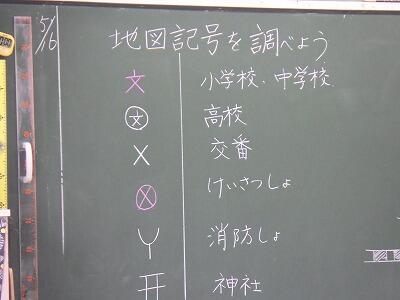 5/6
地図記号を調べよう
文 小学校・中学校
文 高校
X 交番
X けいさつしょ
Y 消防しょ
开 神社